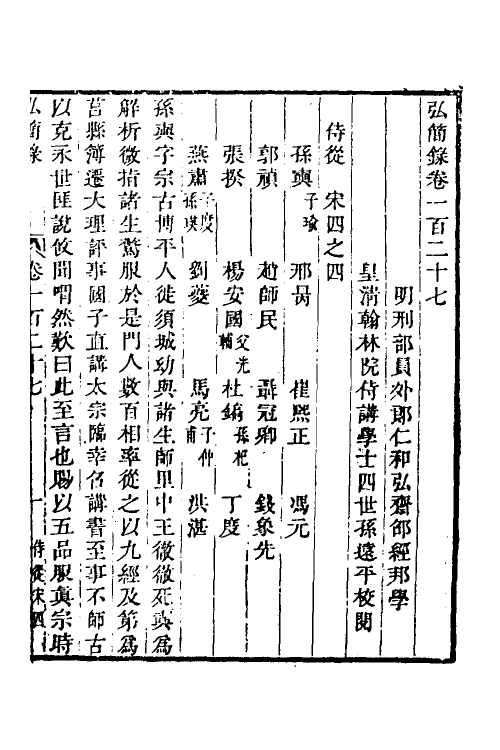 弘簡錄卷一百二十七
明刑部員外郎仁和弘齋邵經邦學
皇清翰林院侍講學士四世孫遠平校閱
侍從 宋四之四
孫奭子瑜 邢昺 崔熙正 馮元
郭禎 趙師民 聶冠卿 錢象先
張揆 楊安國父光輔 杜鎬孫杞 丁度
燕肅子度孫瑛 劉夔 馬亮子仲甫 洪湛
孫奭字宗古博平人徙須城幼與諸生師里中王徹徹死奭爲
解析微指諸生驚服於是門人數百相率從之以九經及第爲
莒縣簿遷大理評事國子直講太宗臨幸召講書至事不師古
以克永世匪說攸聞喟然歎曰此至言也賜以五品服真宗時
弘簡錄 卷一百二十七 一 侍從宋四